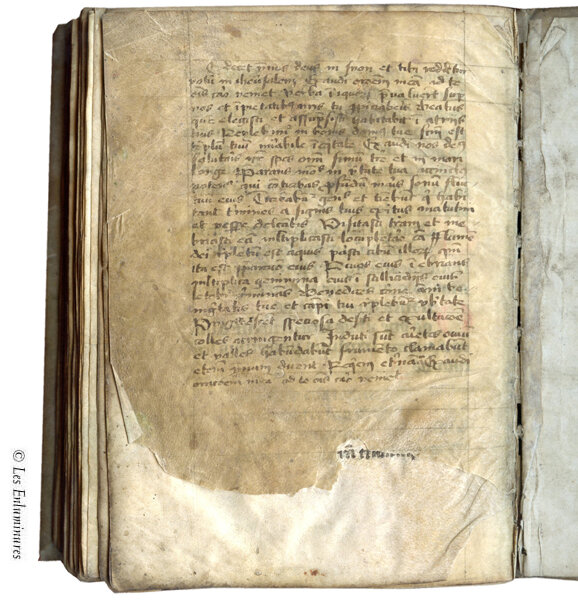 E decet ymnus deus in syon et tibi reddetur
votū in iherusalem Exaudi oroem meā ad te
ois caro veniet verba iniquor pvaluert sup
nos et īpietatib nris tu ppiciaberis Beatus
quē elegisti et assupsisti habitabit ī atriis
tuis Replebimʳ in bonis domus tue scm est
teplū tuū mirabile ī eqitate Exaudi nos deus
salutaris nr spes oim finiū tre et in mari
longe Parans mōtes in virtute tua accinctus
potencia qui conturbas pfundū maris sonū fluc
tuū eius Turbabūt gentes et timebūt q habi
tant tminos a signis tuis exitus matutini
et vespe delectabis Visitasti terram et ine
briasti eā multiplicasti locupletare eā Flumen
dei repletū est aquis parasti cibū illorum qm
ita est pparacio eius Rivos eius ī ebrians
multiplica genimina eius ī stillicidiis eius
letabit germinans Benedices corone anni be
nignitatis tue et campi tui replebūt ubertate
Pinguescēt speciosa deserti et exultacione
colles accingentur Induti sunt arietes oviū
et valles habūdabūt frumento clamabūt
etem ymnum dicent Requiem eternā Exaudi
oroem meā ad te ois caro veniet
© Les Enluminures